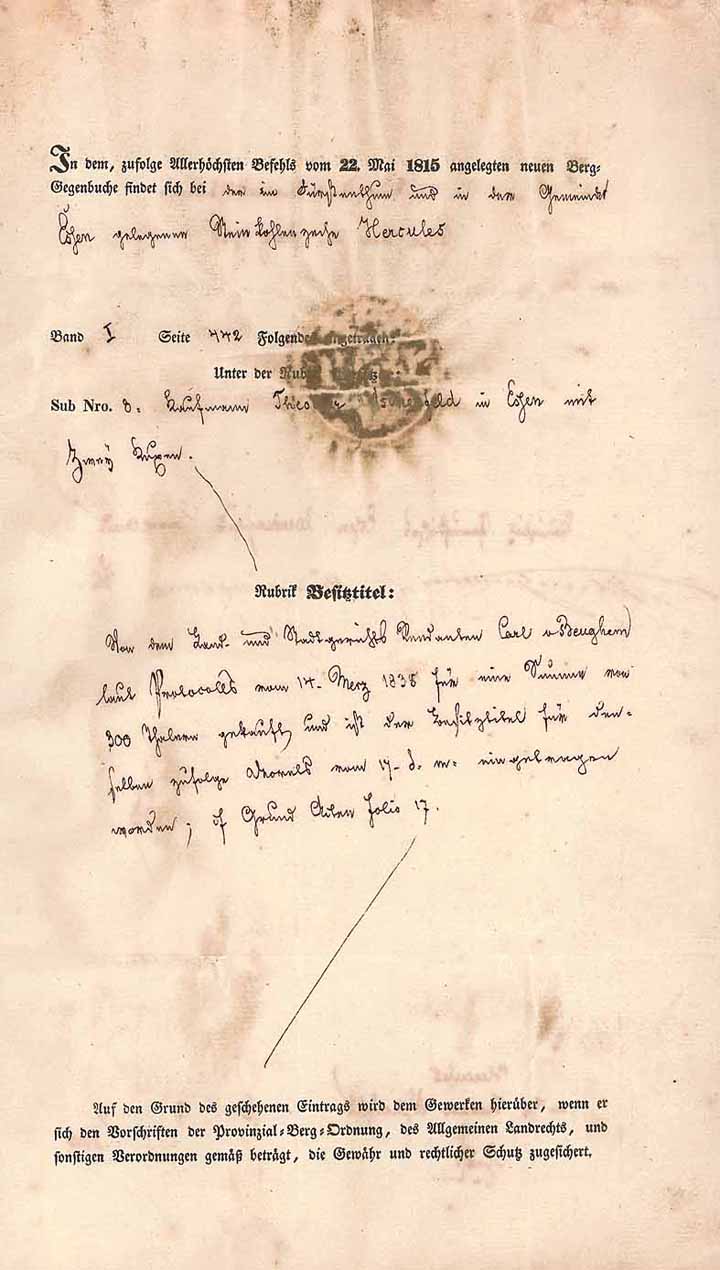 In dem, zufolge Allerhöchsten Befehls vom 22. Mai 1815 angelegten neuen Berg-
Gegenbuche findet sich bei der im Fürstenthum und in der Gemeinde
Eßen gelegenen Steinkohlenzeche Hercules
Band I Seite 442 Folgendes eingetragen:
Unter der Rubrik
Sub Nro. 8. Kaufmann in Eßen mit
zweÿ Kuxen.
Rubrik Besitztitel:
Von dem Land- und Stadtgerichts Rendanten Carl v Beughem
laut Protocolls vom 14. Merz 1838 für eine Summe von
300 Thalern gekauft, und ist der Besitztitel für den-
selben zufolge Decrets vom 17. d. m. eingetragen
worden; cf Grund Acten Folio 17.
Auf den Grund des geschehenen Eintrags wird dem Gewerken hierüber, wenn er
sich den Vorschriften der Provinzial-Berg-Ordnung, des Allgemeinen Landrechts, und
sonstigen Verordnungen gemäß beträgt, die Gewähr und rechtlicher Schutz zugesichert.